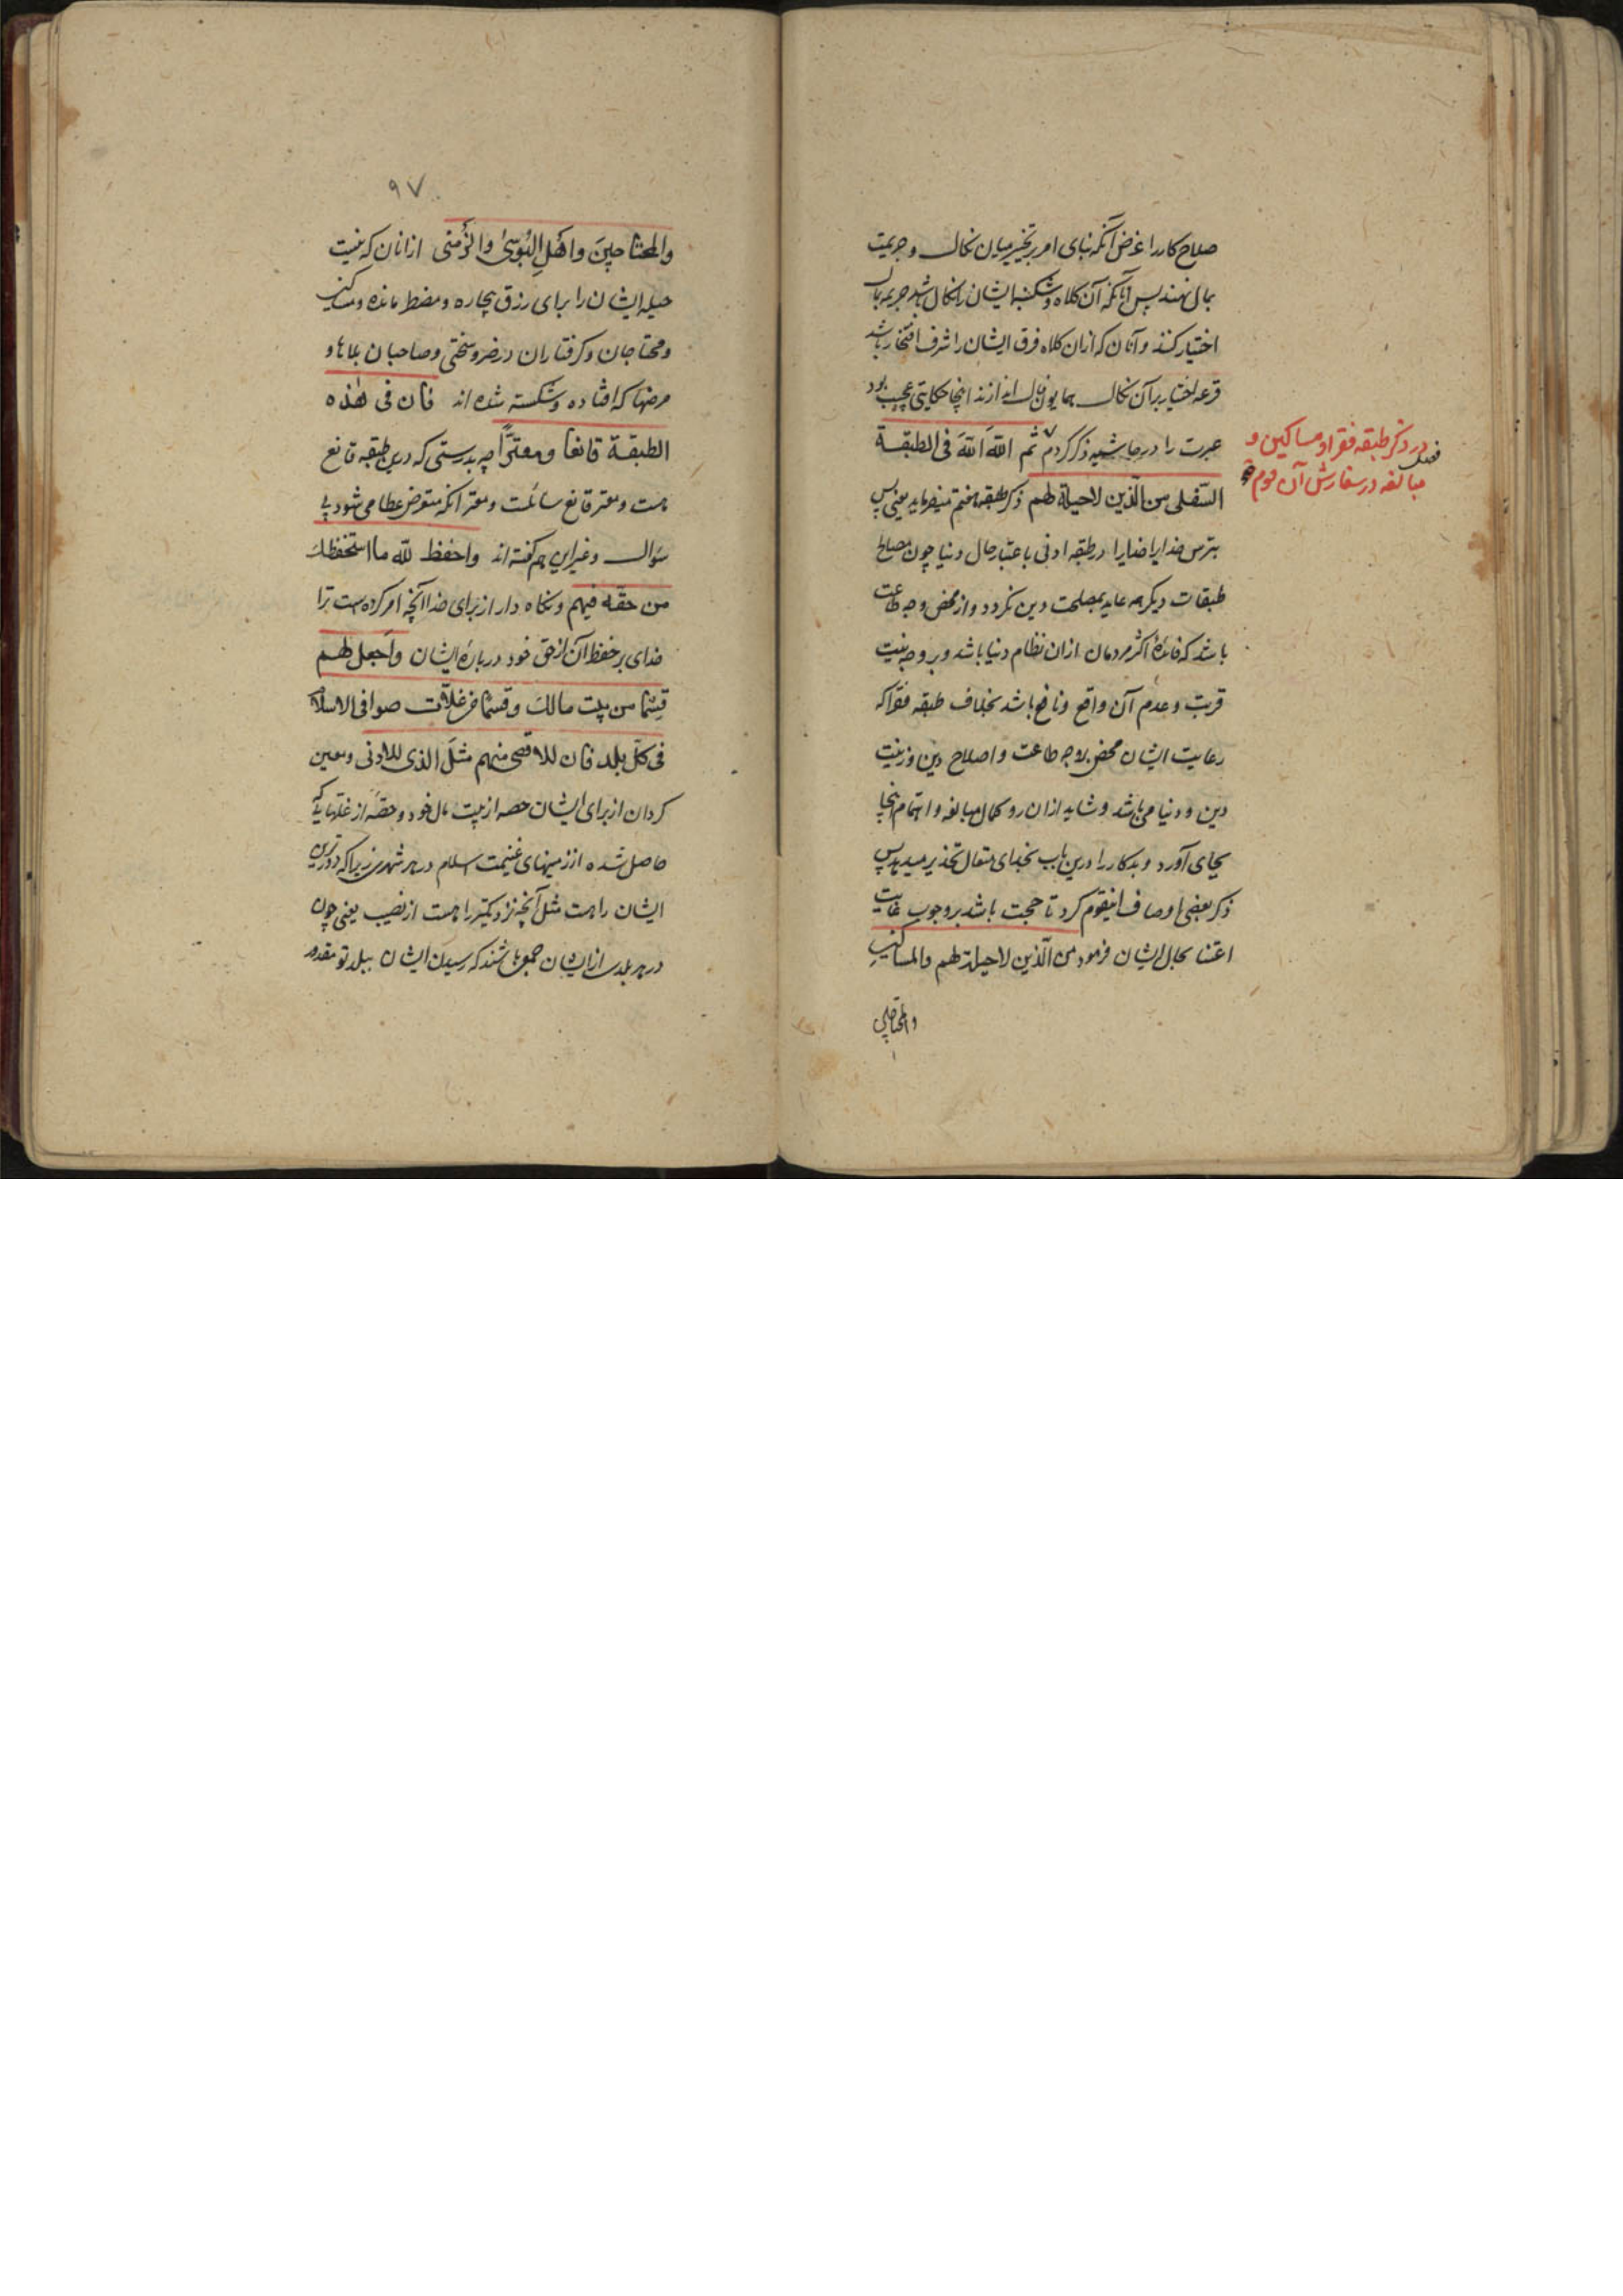 صلاح کار را غرض آنکه بنای امر بر تخییر میان نکال و جریمت
بمال نهند پس آنانکه آن کلاه و شکنبه ایشان را نکال باشد جریمه بمال
اختیار کنند و آنان که ازان کلاه فرق ایشان را شرف افتخار باشد
قرعه اختیار بر آن نکال همایون فال اندازند اینجا حکایتی عجیب بود
عبرت را در حاشیه ذکر کردم ثم الله الله فی الطبقة
السّفلی من الّذین لا حیلة لهم ذکر طبقه پنجم میفرماید یعنی پس
بترس خدایرا خدایرا در طبقه ادنی باعتبار حال دنیا چون مصالح
طبقات دیگر همه عاید بمصلحت دین نکردد و از محض وجه طاعت
باشد که فائدۀ اکثر مردمان ازان نظام دنیا باشد و بر وجه نیت
قربت و عدم آن واقع و نافع باشد بخلاف طبقه فقرا که
رعایت ایشان محض بر وجه طاعت و اصلاح دین و زینت
دین و دنیا می باشد و شاید ازان رو کمال مبالغه و اهتمام اینجا
بجای آورد و بدکار را درین باب بخدای متعال تحذیر میدهد پس
ذکر بعضی اوصاف اینقوم کرد تا حجت باشد بر وجوب غایت
اعتنا بحال ایشان فرمود من الّذین لا حیلة لهم والمساکین
والمحتاجین
در ذکر طبقه فقرا و مساکین و
فصل
مبالغه در سفارش آن قوم
۹۷
والمحتاجین واهل البُؤسیٰ والزَّمنی ازانان که نیست
حیله ایشان را برای رزق بیچاره و مضطر مانده و مساکین
و محتاجان و کرفتاران در ضر و سختی و صاحبان بلاها و
مرضها که افتاده و شکسته شده اند فان فی هٰذه
الطبقة قانعا ومعترًّا چه بدرستی که درین طبقه قانع
هست و معتر قانع سائلست و معتر آنکه متعرض عطا می شود بی
سؤال و غیر این هم کفته اند واحفظ لله ما استحفظك
من حقه فیهم و نگاه دار از برای خدا آنچه امر کرده است ترا
خدای بر حفظ آن از حق خود در بارۀ ایشان واجعل لهم
قِسما من بیت مالك وقسما من غلاّت صوافی الاسلام
فی کلّ بلد فان للاقصی منهم مثلَ الذی للادنی و معین
کردان از برای ایشان حصه از بیت مال خود و حصّه از غلّها که
حاصل شده از زمینهای غنیمت اسلام در هر شهری زیرا که دورترین
ایشان را هست مثل آنچه نزدیکتر را هست از نصیب یعنی چون
در هر بلدی از ایشان جمعی باشند که رسیدن ایشان ببلد تو مقدور